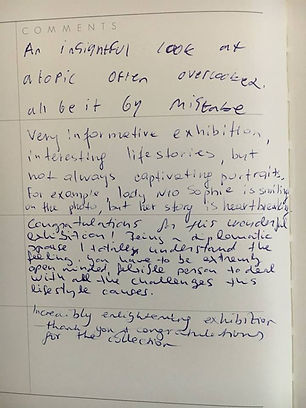 COMMENTS
An insightful look at
a topic often overlooked,
all be it by mistake
Very informative exhibition,
interesting life stories, but
not always captivating portraits.
For example, lady who Sophie is smiling
on the photo, but her story is heartbreaking
Congratulations for this wonderful
exhibition. Being a diplomatic
spouse I totally understand the
feeling. you have to be extremely
open minded, flexible person to deal
with all the challenges this
lifestyle causes.
Increadibly enlightening exhibition
thank you & congratulations
for the collection